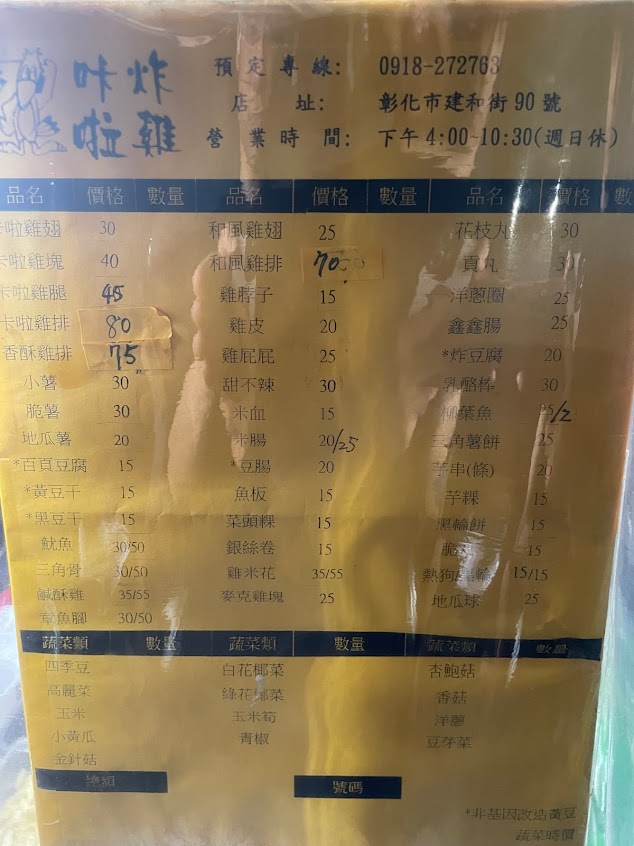 咔啦炸雞
預定專線: 0918-272763
店 址: 彰化市建和街90號
營業時間: 下午4:00-10:30(週日休)
品名 價格 數量 品名 價格 數量 品名 價格 數
卡啦雞翅 30 和風雞翅 25 花枝丸 30
卡啦雞塊 40 和風雞排 70 貢丸 30
卡啦雞腿 45 雞脖子 15 洋蔥圈 25
卡啦雞排 80 雞皮 20 鑫鑫腸 25
香酥雞排 75 雞屁屁 25 *炸豆腐 20
小薯 30 甜不辣 30 乳酪棒 30
脆薯 30 米血 15 柳葉魚 25/2
地瓜薯 20 米腸 20/25 三角薯餅 25
*百頁豆腐 15 *豆腸 20 芋串(條) 20
*黃豆干 15 魚板 15 芋粿 15
*黑豆干 15 菜頭粿 15 黑輪餅 15
魷魚 30/50 銀絲卷 15 脆丸 15
三角骨 30/50 雞米花 35/55 熱狗/黑輪 15/15
鹹酥雞 35/55 麥克雞塊 25 地瓜球 25
章魚腳 30/50
蔬菜類 數量 蔬菜類 數量 蔬菜類 數量
四季豆 白花椰菜 杏鮑菇
高麗菜 綠花椰菜 香菇
玉米 玉米筍 洋蔥
小黃瓜 青椒 豆芽菜
金針菇
總額 號碼
*非基因改造黃豆
蔬菜時價